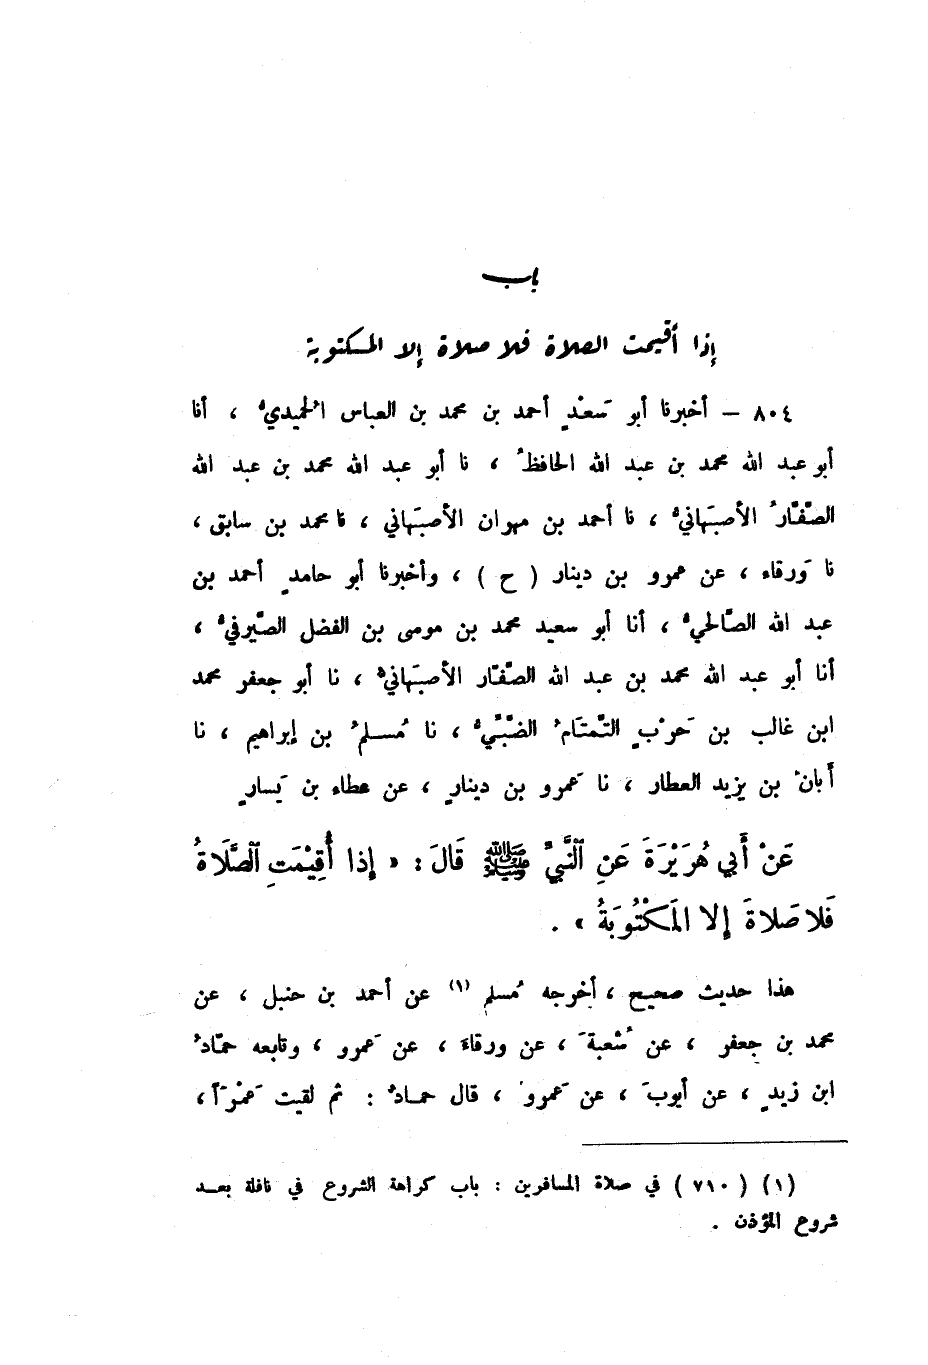 باب
إذا أقيمت الصلاة فلا صلاة إلا المكتوبة
٨٠٤ – أخبرنا أبو سَعْدٍ أحمد بن محمد بن العباس الحميديُّ ، أنا
أبو عبد الله محمد بن عبد الله الحافظُ ، نا أبو عبد الله محمد بن عبد الله
الصَّفّارُ الأصبَهانيُّ ، نا أحمد بن مهران الأصبَهاني ، نا محمد بن سابق ،
نا وَرقاء ، عن عمرو بن دينار ( ح ) ، وأخبرنا أبو حامدٍ أحمد بن
عبد الله الصَّالحيُّ ، أنا أبو سعيد محمد بن موسى بن الفضل الصَّيرفيُّ ،
أنا أبو عبد الله محمد بن عبد الله الصَّفّار الأصبَهانيُّ ، نا أبو جعفر محمد
ابن غالب بن حَربٍ التَّمتَامُ الضَّبِّيُّ ، نا مُسلمُ بن إبراهيم ، نا
أبانُ بن يزيد العطار ، نا عَمرو بن دينارٍ ، عن عطاء بن يَسارٍ
عَنْ أَبي هُرَيْرَةَ عَنِ النَّبيِّ ﷺ قَالَ : « إِذا أُقِيْمَتِ الصَّلَاةُ
فَلا صَلاةَ إِلا المَكْتُوبَةُ » .
هذا حديث صحيح ، أخرجه مُسلم (١) عن أحمد بن حنبل ، عن
محمد بن جعفر ، عن شُعبةَ ، عن ورقاءَ ، عن عَمرو ، وتابعه حمّادُ
ابن زيدٍ ، عن أيوبَ ، عن عَمرو ، قال حمادُ : ثم لقيت عَمْرَاً ،
(١) ( ٧١٠ ) في صلاة المسافرين : باب كراهة الشروع في نافلة بعد
شروع المؤذن .